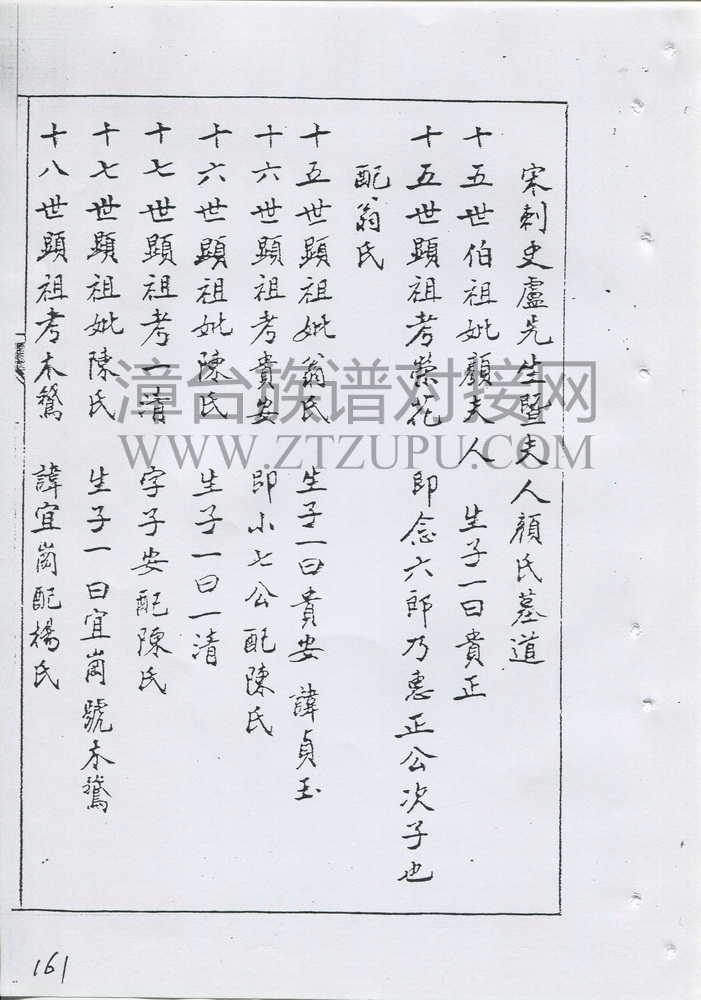 宋刺史盧先生暨夫人顏氏墓道
十五世伯祖妣顏夫人 生子一曰貴正
十五世顯祖考榮花 即念六郎乃惠正公次子也
配翁氏
十五世顯祖妣翁氏 生子一曰貴安 諱貞玉
十六世顯祖考貴安 即小七公配陳氏
十六世顯祖妣陳氏 生子一曰一清
十七世顯祖考一清 字子安配陳氏
十七世顯祖妣陳氏 生子一曰宜崗號木鶩
十八世顯祖考木鶩 諱宜崗配楊氏
漳台族谱对接网
WWW.ZTZUPU.COM
161